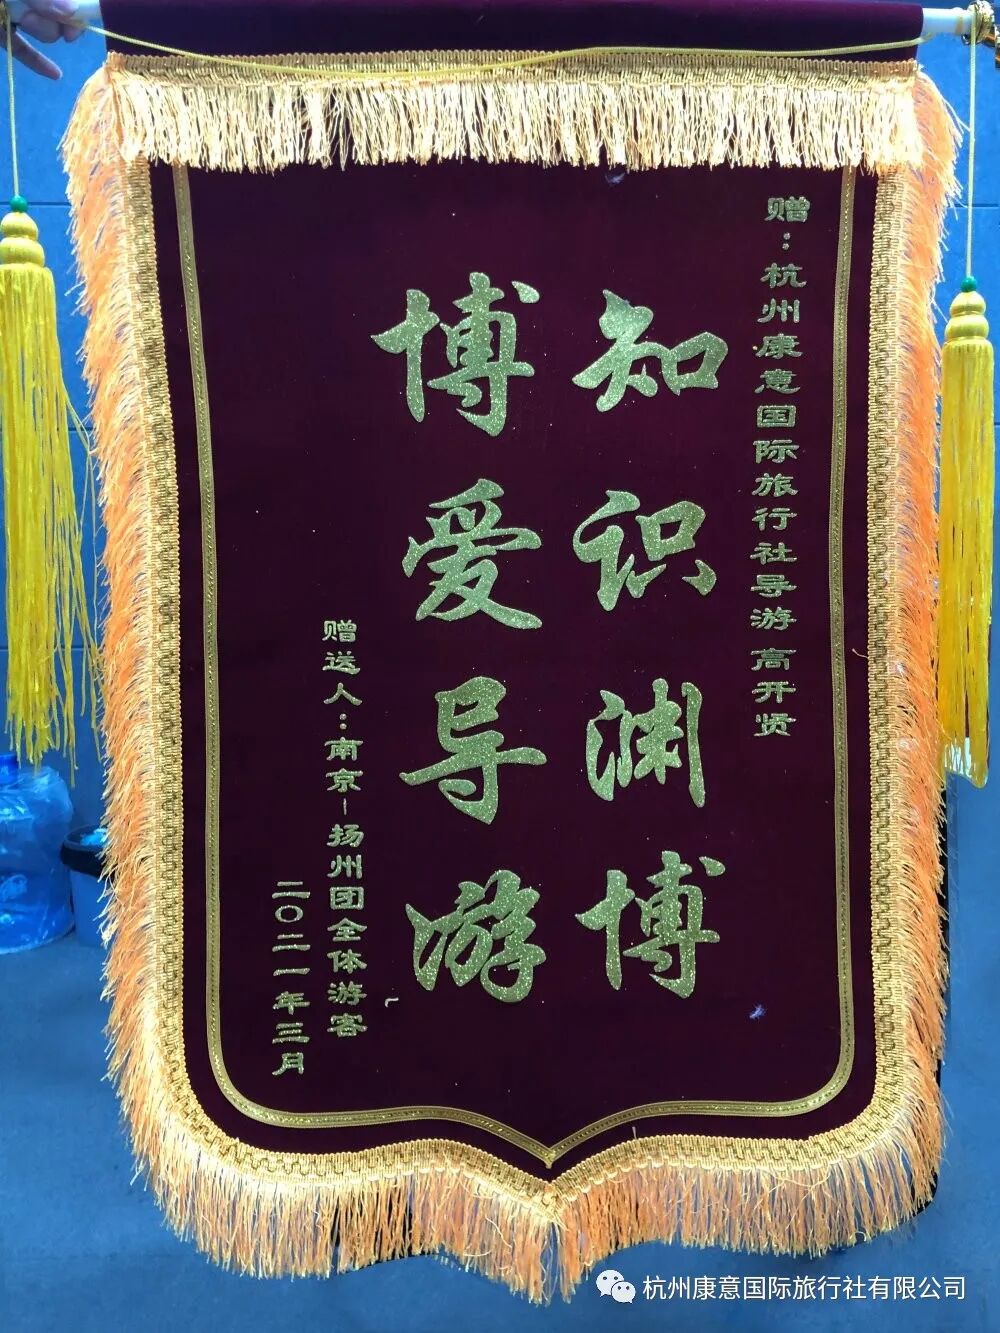 赠：杭州康意国际旅行社导游 高开贤
知识渊博
博爱导游
赠送人：南京-扬州团全体游客
二〇二一年三月
杭州康意国际旅行社有限公司